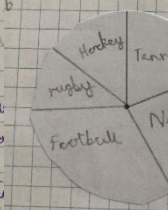 b
Hockey
Tenn
rugby
N
Football